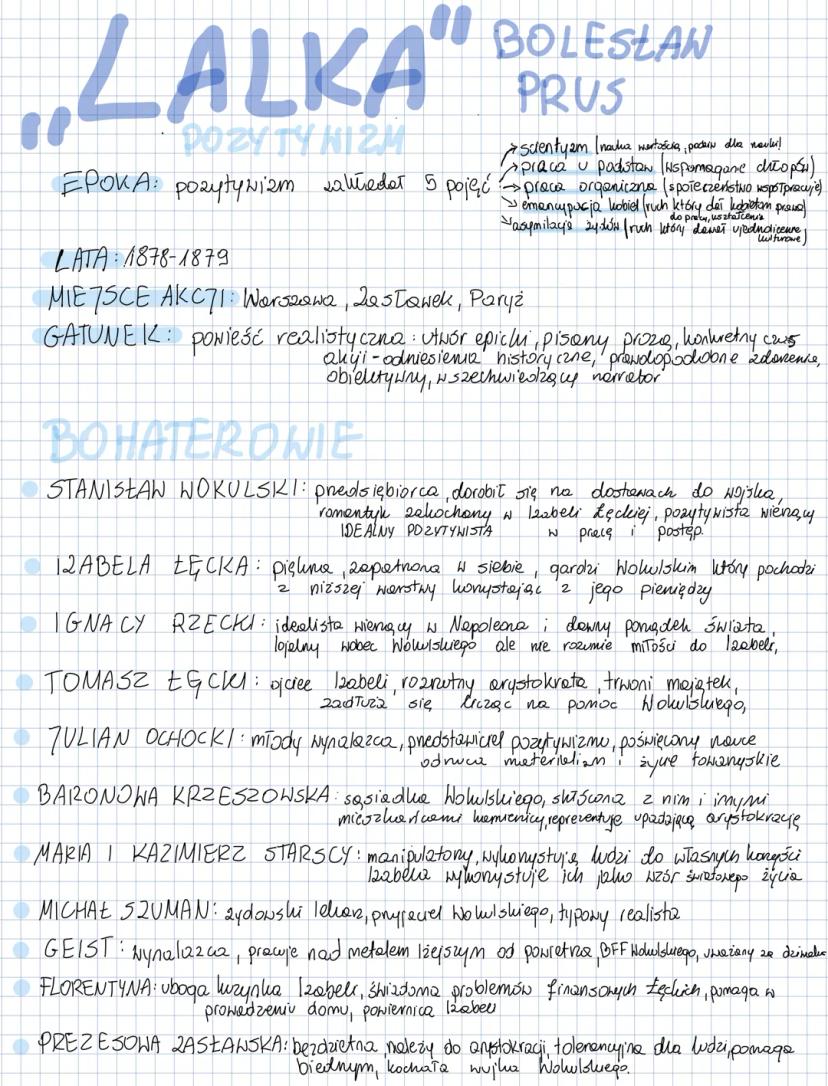 „LALKA”
BOLESŁAW
PRUS
POZYTYWIZM
EPOKA: pozytywizm zakładał 5 pojęć
scientyzm (nauka wartością, podziw dla nauki)
praca u podstaw (wspomaganie chłopów)
praca organiczna (społeczeństwo współpracuje)
emancypacja kobiet (ruch który dał kobietom prawo)
do pracy, wształcenia
asymilacja żydów (ruch który dawał ujednolicenie
kulturowe)
LATA: 1878-1879
MIEJSCE AKCJI: Warszawa, Zasławek, Paryż
GATUNEK: powieść realistyczna: utwór epicki, pisany prozą, konkretny czas
akcji - odniesienia historyczne, prawdopodobne zdarzenia,
obiektywny, wszechwiedzący narrator
BOHATEROWIE
STANISŁAW WOKULSKI: przedsiębiorca, dorobił się na dostawach do wojska,
romantyk zakochany w Izabeli Łęckiej, pozytywista wierzący
IDEALNY POZYTYWISTA w pracę i postęp.
IZABELA ŁĘCKA: piękna, zapatrzona w siebie, gardzi Wokulskim który pochodzi
z niższej warstwy korzystając z jego pieniędzy
IGNACY RZECKI: idealista wierzący w Napoleona i dawny porządek świata,
lojalny wobec Wokulskiego ale nie rozumie miłości do Izabeli,
TOMASZ ŁĘCKI: ojciec Izabeli, rozrzutny arystokrata, trwoni majątek,
zadłuża się licząc na pomoc Wokulskiego,
JULIAN OCHOCKI: młody wynalazca, przedstawiciel pozytywizmu, poświęcony nauce
odrzuca materializm i życie towarzyskie
BARONOWA KRZESZOWSKA: sąsiadka Wokulskiego, skłócona z nim i innymi
mieszkańcami kamienicy, reprezentuje upadającą arystokrację
MARIA I KAZIMIERZ STARSCY: manipulatorzy, wykorzystują ludzi do własnych korzyści
Izabela wykorzystuje ich jako wzór światowego życia
MICHAŁ SZUMAN: żydowski lekarz, przyjaciel Wokulskiego, typowy realista
GEIST: wynalazca, pracuje nad metalem lżejszym od powietrza, BFF Wokulskiego, uważany za dziwaka
FLORENTYNA: uboga kuzynka Izabeli, świadoma problemów finansowych Łęckich, pomaga w
prowadzeniu domu, powiernica Izabeli
PREZESOWA ZASŁAWSKA: bezdzietna, należy do arystokracji, tolerancyjna dla ludzi, pomaga
biednym, kochała wujka Wokulskiego.